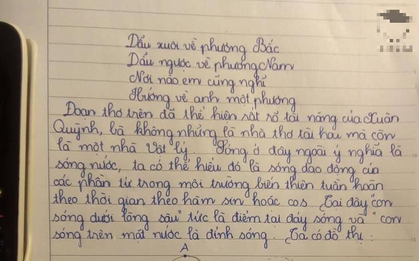 Dẫu xuôi về phương Bắc
Dẫu ngược về phương Nam
Nơi nào em cũng nghĩ
Hướng về anh một phương
Đoạn thơ trên đã thể hiện rất rõ tài năng của Xuân
Quỳnh, bà không những là nhà thơ tài hoa mà còn
là một nhà Vật lý. Sóng ở đây ngoài ý nghĩa là
sóng nước, ta có thể hiểu đó là sóng dao động của
các phần tử trong môi trường biến thiên tuần hoàn
theo thời gian theo hàm sin hoặc cos. Tại đây "con
sóng dưới lòng sâu" tức là điểm tại đáy sóng và "con
sóng trên mặt nước là đỉnh sóng. Ta có đồ thị:
A